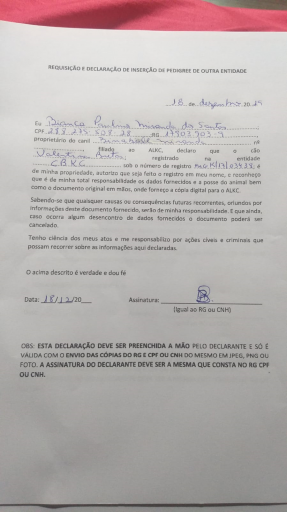 REQUISIÇÃO E DECLARAÇÃO DE INSERÇÃO DE PEDIGREE DE OUTRA ENTIDADE
18 de dezembro 20
Eu dos Santos
CPF RG
proprietário do canil nº
filiado ao ALKC, declaro que o cão
registrado na entidade
CBKC sob o número de registro
de minha propriedade, autorizo que seja feito o registro em meu nome, e reconheço
que é de minha total responsabilidade os dados fornecidos e a posse do animal bem
como o documento original em mãos, onde forneço a cópia digital para o ALKC.
Sabendo-se que quaisquer causas ou consequências futuras recorrentes, oriundos por
informações deste documento fornecido, serão de minha responsabilidade. E que ainda,
caso ocorra algum desencontro de dados fornecidos o documento poderá ser
cancelado.
Tenho ciência dos meus atos e me responsabilizo por ações cíveis e criminais que
possam recorrer sobre as informações aqui declaradas.
O acima descrito é verdade e dou fé
Data: 18/12/20 Assinatura:
(Igual ao RG ou CNH)
OBS: ESTA DECLARAÇÃO DEVE SER PREENCHIDA A MÃO PELO DECLARANTE E SÓ É
VÁLIDA COM O ENVIO DAS CÓPIAS DO RG E CPF OU CNH DO MESMO EM JPEG, PNG OU
FOTO. A ASSINATURA DO DECLARANTE DEVE SER A MESMA QUE CONSTA NO RG CPF
OU CNH.